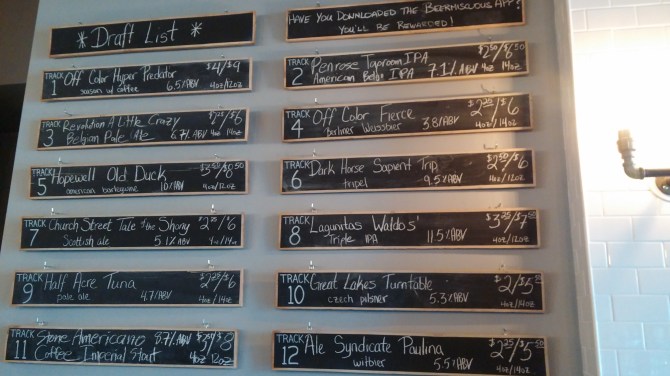 * Draft List *
Have You Downloaded the Beermiscuous App?
You'll Be Rewarded!
TRACK 1 Off Color Hyper Predator $4/$9
saison w/ coffee 6.5% ABV 4oz/12oz
TRACK 2 Penrose Taproom IPA
American Belgo IPA 7.1% ABV 4oz 14oz
TRACK 3 Revolution A Little Crazy $2.25/6
Belgian Pale Ale 6.7% ABV 4oz 14oz
TRACK 4 Off Color Fierce $2.25/6
Berliner Weissbier 3.8% ABV 4oz/14oz
TRACK 5 Hopewell Old Duck $3.50/8.50
american barleywine 10% ABV 4oz/12oz
TRACK 6 Dark Horse Sapient Trip $2.50/6
tripel 9.5% ABV 4oz/12oz
TRACK 7 Church Street Tale of the Shony $2.25/6
Scottish ale 5.1% ABV 4oz/14oz
TRACK 8 Lagunitas Waldos' $3.25/7
Triple IPA 11.5% ABV 4oz/12oz
TRACK 9 Half Acre Tuna $2.25/6
pale ale 4.7% ABV 4oz/14oz
TRACK 10 Great Lakes Turntable $2/5
czech pilsner 5.3% ABV 4oz/14oz
TRACK 11 Stone Americano 8.7% ABV 8
Coffee Imperial Stout 4oz 12oz
TRACK 12 Ale Syndicate Paulina $2/5.50
witbier 5.5% ABV 4oz/14oz